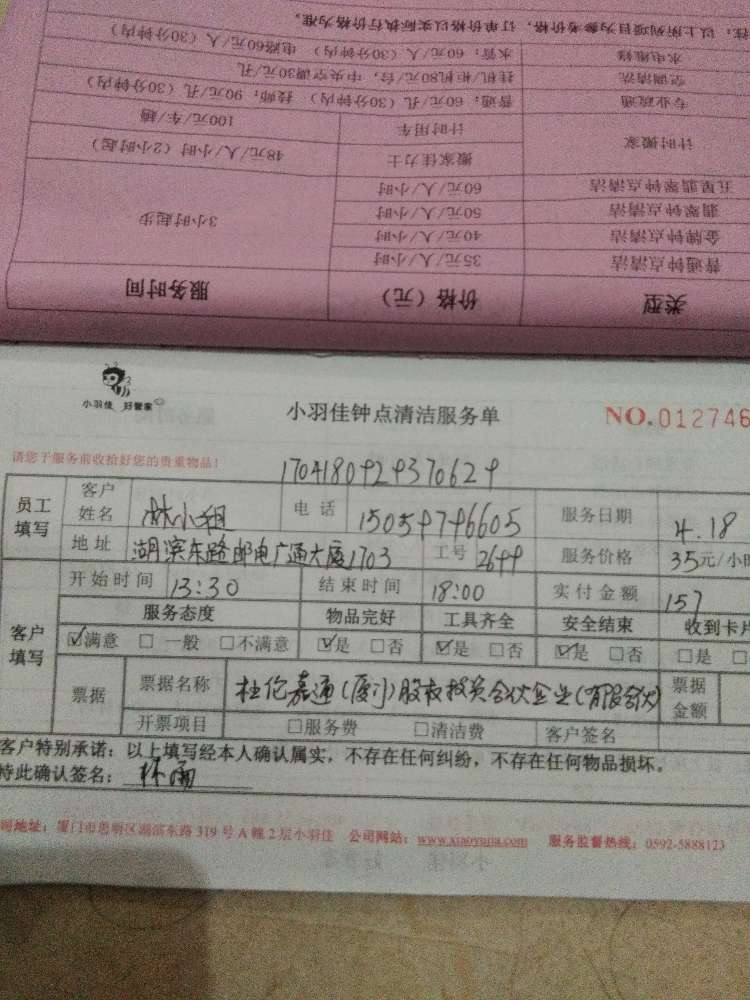 注：以上所列项目为参考价格，订单价格以实际执行价格为准。
水电维修 水管：60元/人（30分钟内） 电路60元/人（30分钟内）
空调清洗 挂机柜机80元/台，中央空调30元/孔
专业疏通 普通：60元/孔（30分钟内） 技师：90元/孔（30分钟内）
计时搬家 计时用车 100元/车/趟
搬家佳力士 48元/人/小时（2小时起）
五星翡翠钟点清洁 60元/人/小时
翡翠钟点清洁 50元/人/小时 3小时起步
金牌钟点清洁 40元/人/小时
普通钟点清洁 35元/人/小时
类型 价格（元） 服务时间
小羽佳 好管家
小羽佳钟点清洁服务单 NO.012746
请您于服务前收拾好您的贵重物品！
员工填写 客户姓名 林小姐 电话 服务日期 4.18
地址 湖滨东路邮电广通大厦1703 工号 2649 服务价格 35元/小时
客户填写 开始时间 13:30 结束时间 18:00 实付金额 157
服务态度 物品完好 工具齐全 安全结束 收到卡片
☑满意 □一般 □不满意 ☑是 □否 ☑是 □否 ☑是 □否 □是 □
票据 票据名称 杜伦嘉通（厦门）股权投资合伙企业（有限合伙） 票据金额
开票项目 □服务费 □清洁费 客户签名
客户特别承诺：以上填写经本人确认属实，不存在任何纠纷，不存在任何物品损坏。
特此确认签名：林雨
司地址：厦门市思明区湖滨东路319号A幢2层小羽佳 公司网站：www.xiaoyujia.com 服务监督热线：0592-5888123